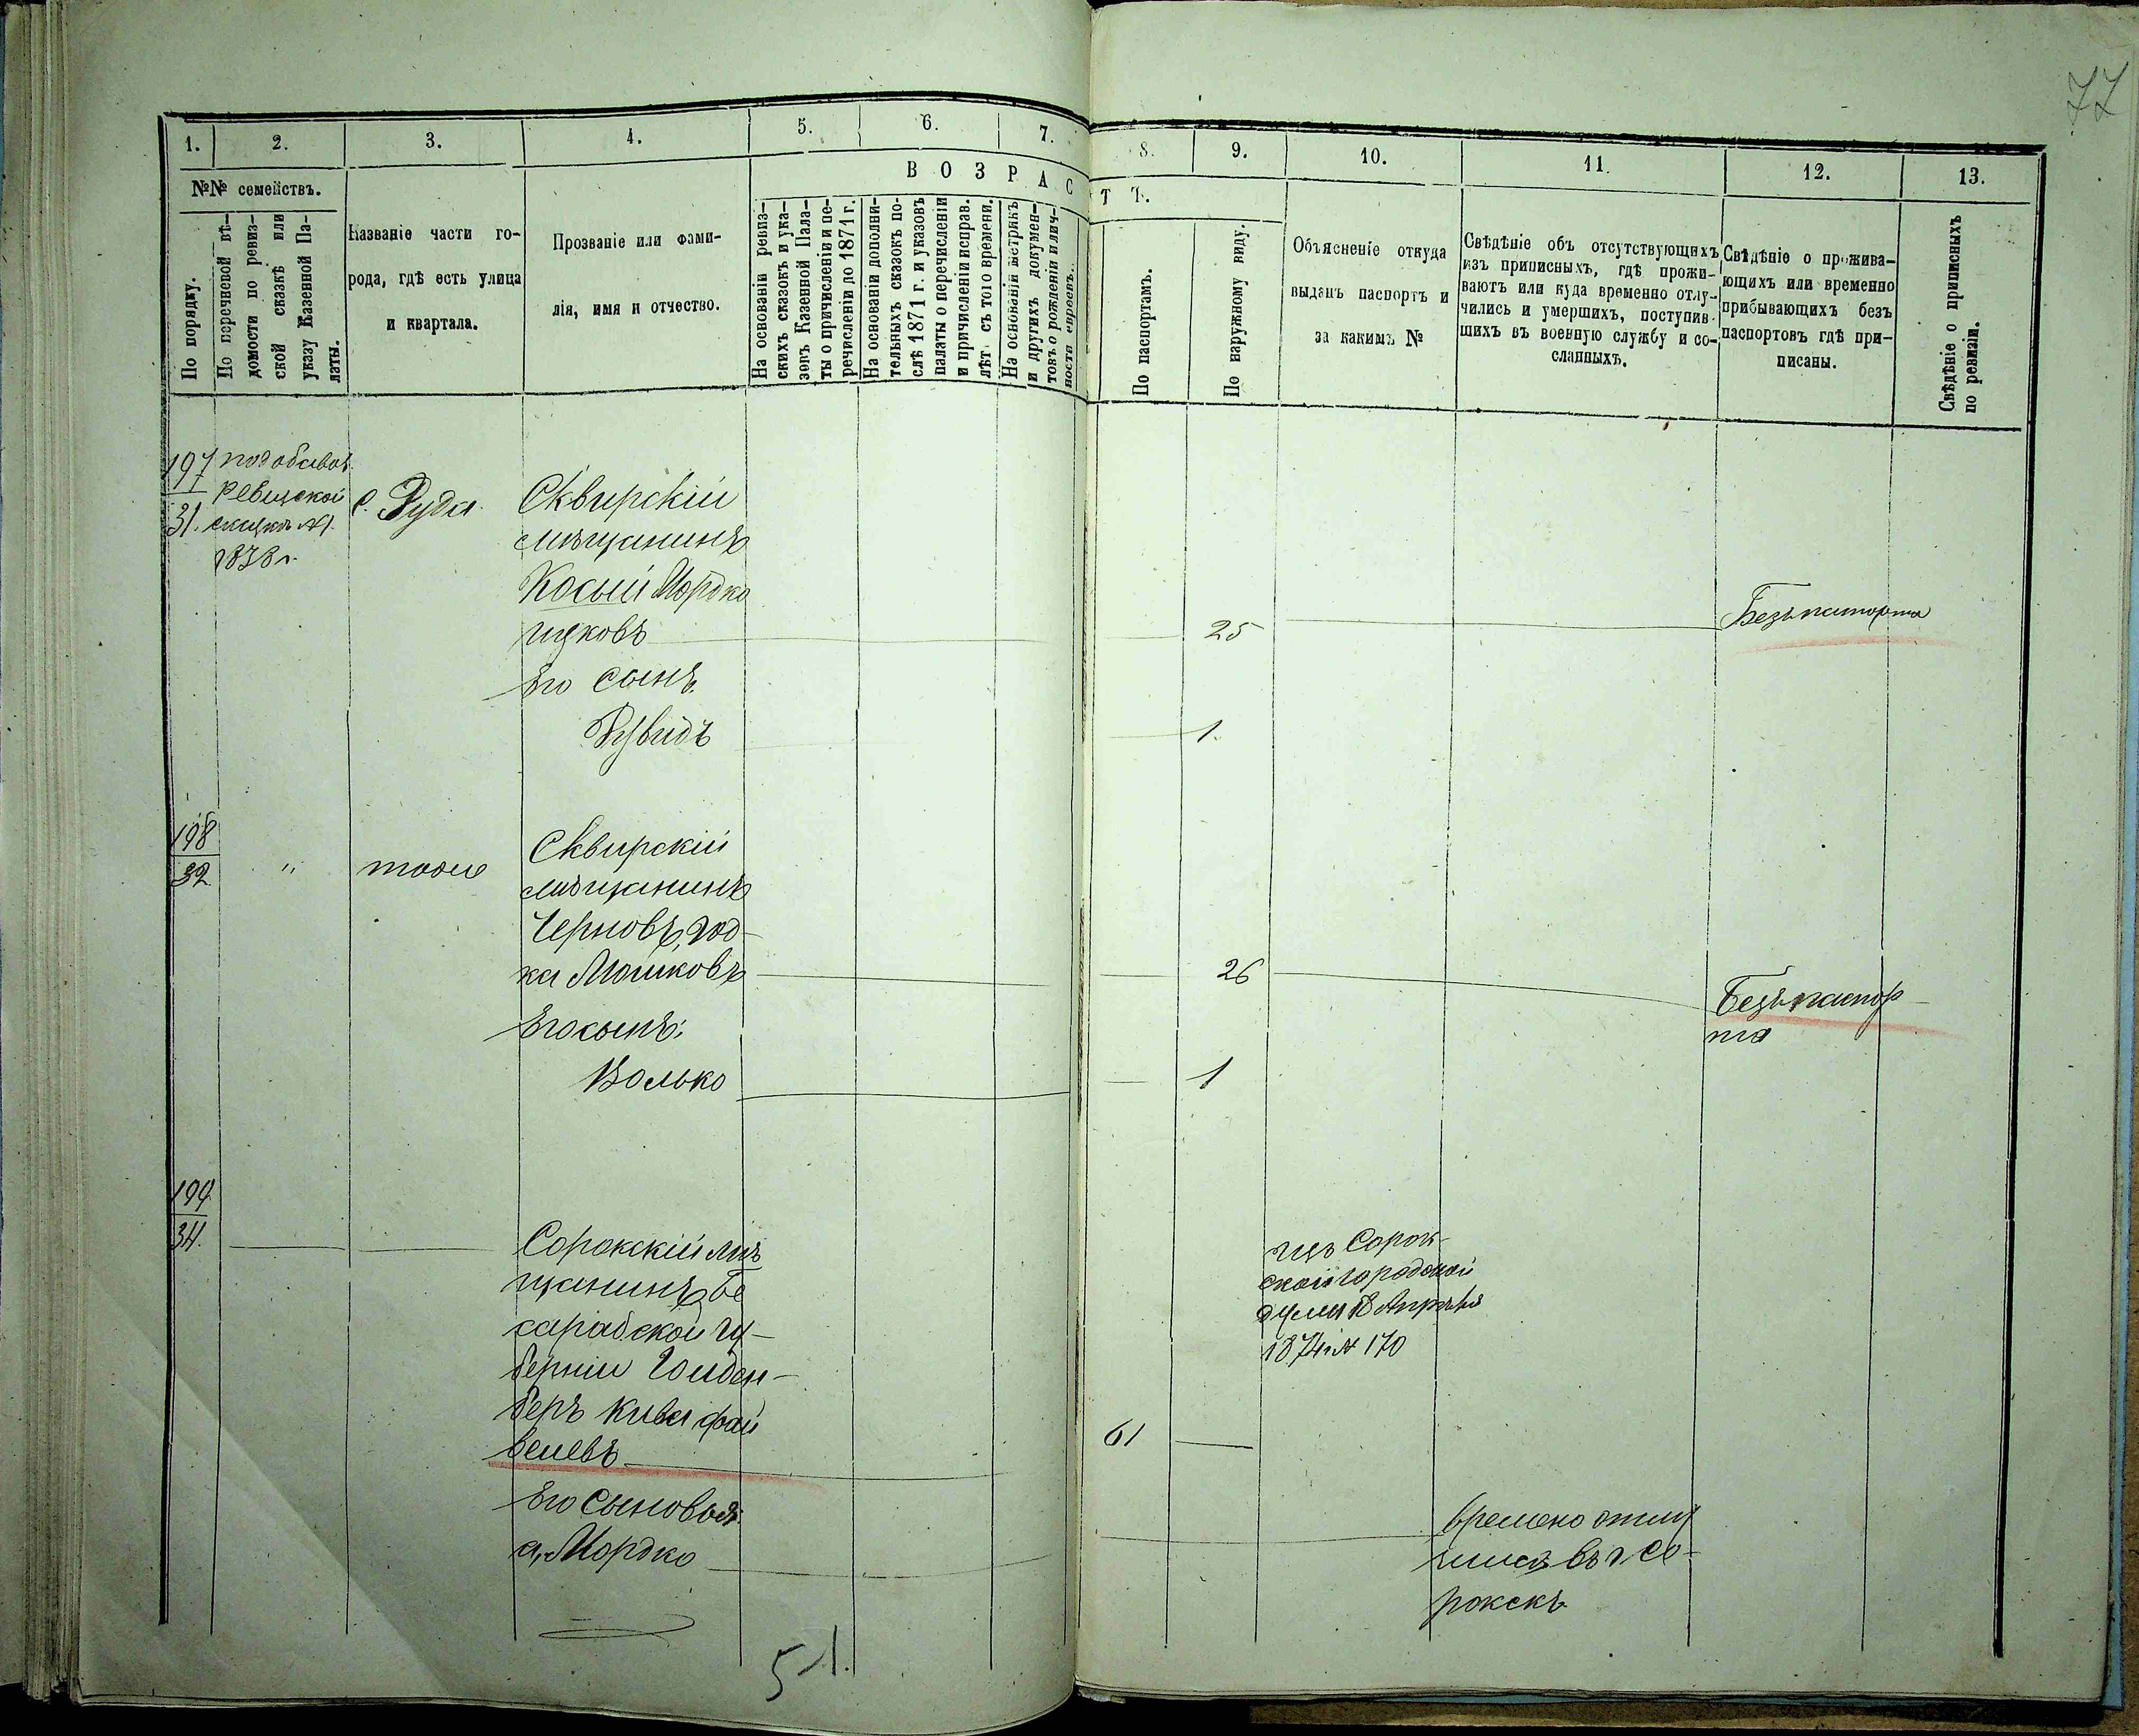 77
1. 2. 3. 4. 5. 6. 7. 8. 9. 10. 11. 12. 13.
№№ семействъ.
По порядку.
По перечневой вѣ-
домости по ревиз-
ской сказкѣ или
указу Казенной Па-
латы.
Названіе части го-
рода, гдѣ есть улица
и квартала.
Прозваніе или фами-
лія, имя и отчество.
ВОЗРАСТЪ.
На основаніи ревиз-
скихъ сказокъ и ука-
зовъ Казенной Пала-
ты о причисленіи и пе-
речисленіи до 1871 г.
На основаніи дополни-
тельныхъ сказокъ по-
слѣ 1871 г. и указовъ
палаты о перечисленіи
и причисленіи исправ.
лѣт съ того времени.
На основаніи метрикъ
и другихъ докумен-
товъ о рожденіи и лич-
ности евреевъ.
По паспортамъ.
По наружному виду.
Объясненіе откуда
выданъ паспортъ и
за какимъ №
Свѣдѣніе объ отсутствующихъ
изъ приписныхъ, гдѣ прожи-
ваютъ или куда временно отлу-
чились и умершихъ, поступив-
шихъ въ военную службу и со-
сланныхъ.
Свѣдѣніе о прожива-
ющихъ или временно
прибывающихъ безъ
паспортовъ гдѣ при-
писаны.
Свѣдѣніе о приписныхъ
по ревизіи.
197
31.
скацкѣ №1.
1878 г.
с. Руда
Сквирскій
мѣщанинъ
Косый Мордко
ицковъ
25
Безъ паспорта
Его сынъ
Рувидъ
1.
198
32
"
тоже
Сквирскій
мѣщанинъ
Черновъ, Іод-
ка Мошковъ
26
Безъ паспор-
та
Его сынъ:
Волько
1
199
34.
Сорокскій мѣ
щанинъ Бе
сарабской гу-
берніи Голден-
беръ Кива фай
велевъ
61
изъ Сорок-
ской городской
думы 18 Апрѣля
1874 г. № 170
Его Сыновья:
а, Мордко
времено отлу
чился въ г. Со-
рокскъ
51.